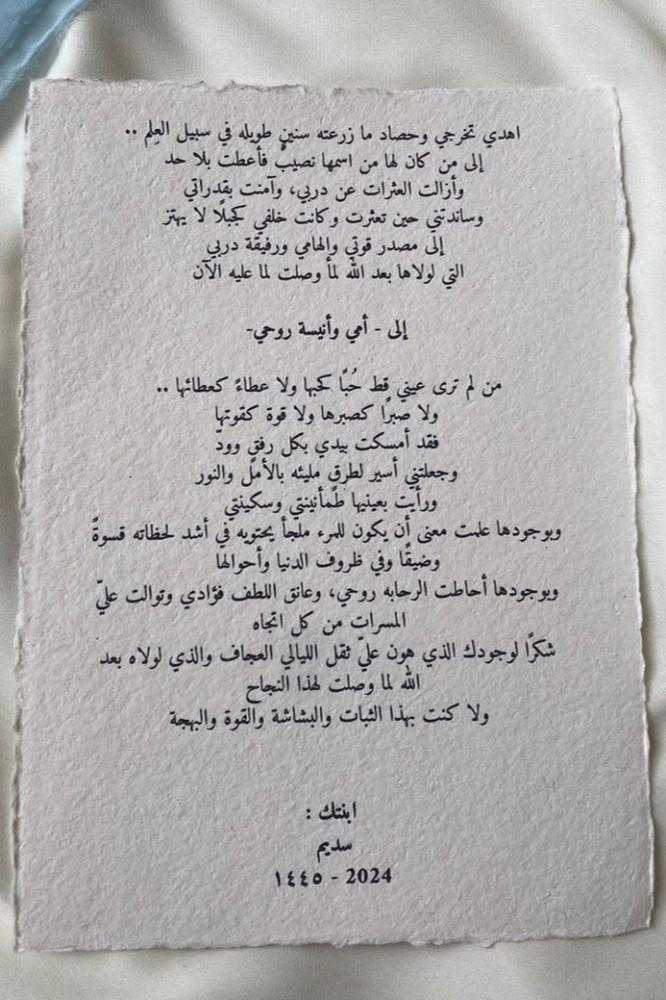 اهدي تخرجي وحصاد ما زرعته سنينٍ طويله في سبيل العِلم ..
إلى من كان لها من اسمها نصيبٌ فأعطت بلا حد
وأزالت العثرات عن دربي، وآمنت بقدراتي
وساندتني حين تعثرت وكانت خلفي كجبلًا لا يهتز
إلى مصدر قوتي وإلهامي ورفيقة دربي
التي لولاها بعد الله لما وصلت لما عليه الآن
إلى - أمي وأنيسة روحي-
من لم ترى عيني قط حُبًا كحبها ولا عطاءً كعطائها ..
ولا صبرًا كصبرها ولا قوة كقوتها
فقد أمسكت بيدي بكل رفقٍ وودّ
وجعلتني أسير لطرقٍ مليئه بالأمل والنور
ورأيت بعينيها طمأنينتي وسكينتي
وبوجودها علمت معنى أن يكون للمرء ملجأ يحتويه في أشد لحظاته قسوةً
وضيقًا وفي ظروف الدنيا وأحوالها
وبوجودها أحاطت الرحابه روحي، وعانق اللطف فؤادي وتوالت عليّ
المسرات من كل اتجاه
شكرًا لوجودك الذي هون عليّ ثقل الليالي العجاف والذي لولاه بعد
الله لما وصلت لهذا النجاح
ولا كنت بهذا الثبات والبشاشة والقوة والبهجة
ابنتك :
سديم
2024 - ١٤٤٥